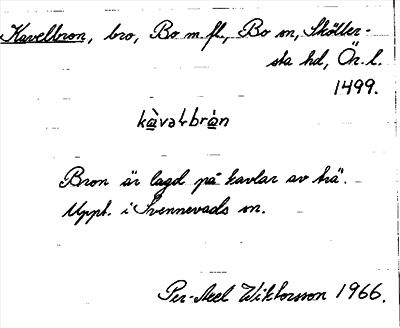 Kavelbron, bro, Bo m fl., Bo sn, Sköller-
sta hd, Ön. l.
1499.
kàvalbrån
Bron är lagd på kavlar av trä.
Uppt. i Svennevads sn.
Per-Axel Wiktorsson 1966.